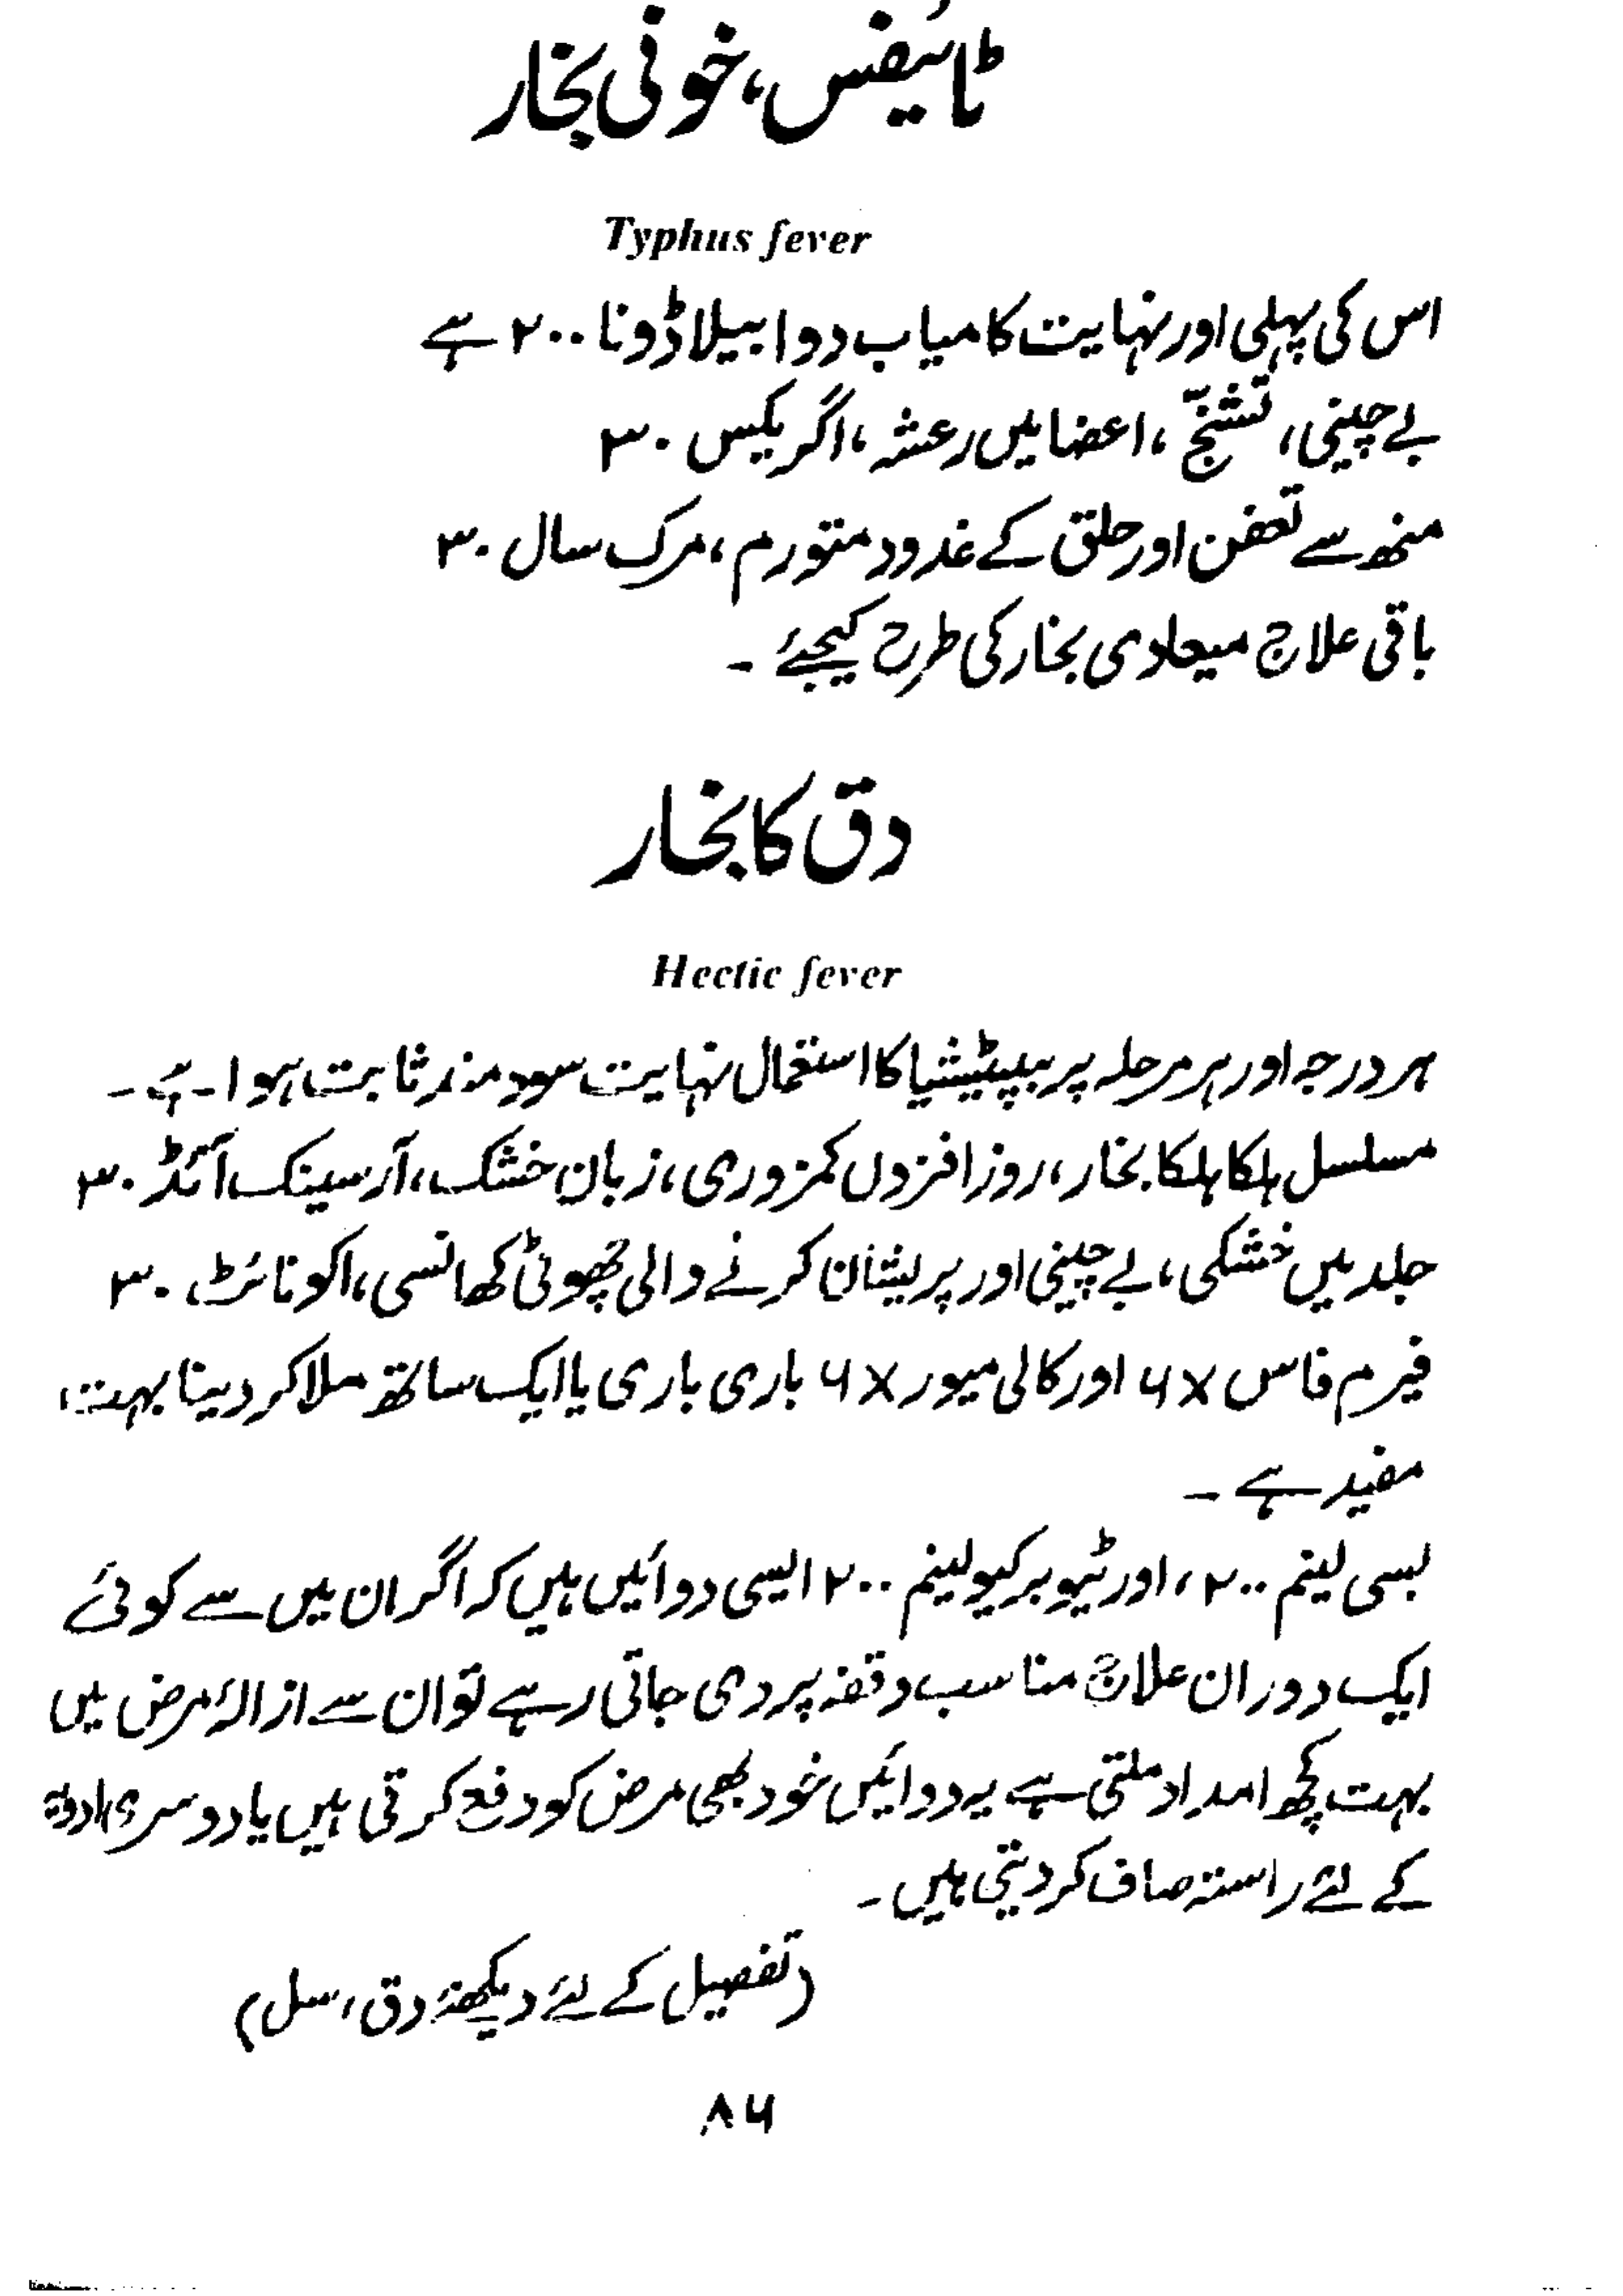 ٹائیفس، خونی بخار
Typhus fever
اس کی پہلی اور نہایت کامیاب دوا بیلاڈونا ۲۰۰ ہے
بے چینی، تشنّج، اعضا میں رعشہ، اگریکس ۳۰
منھ سے تعفن اور حلق کے غدود متورم، مرک سال ۳۰
باقی علاج میعادی بخار کی طرح کیجئے ۔
دق کا بخار
Hectic fever
ہر درجہ اور ہر مرحلہ پر بپٹیشیا کا استعمال نہایت سود مند ثابت ہوا ہے ۔
مسلسل ہلکا ہلکا بخار، روز افزوں کمزوری، زبان خشک، آرسینک آئڈ ۳۰
جلد میں خشکی، بے چینی اور پریشان کرنے والی چھوٹی کھانسی، اکونائٹ ۳۰
فیرم فاس ۶x اور کالی میور ۶x باری باری یا ایک ساتھ ملا کر دینا بہت
مفید ہے ۔
بسی لینم ۲۰۰، اور ٹیوبرکیولینم ۲۰۰ ایسی دوائیں ہیں کہ اگر ان میں سے کوئی
ایک دوران علاج مناسب وقفہ پر دی جاتی رہے تو ان سے ازالۂ مرض میں
بہت کچھ امداد ملتی ہے یہ دوائیں خود بھی مرض کو دفع کرتی ہیں یا دوسری ادویہ
کے لئے راستہ صاف کر دیتی ہیں ۔
(تفصیل کے لئے دیکھئے دق، سل)
۸۶